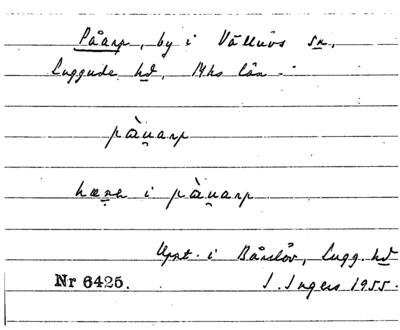 Påarp, by i Välluvs sn,
Luggude hd, Mhs län -
pàu̯arp
hæṛə i pàu̯arp
Uppt. i Bårslöv, Lugg. hd
Nr 6425. I. Ingers 1955.